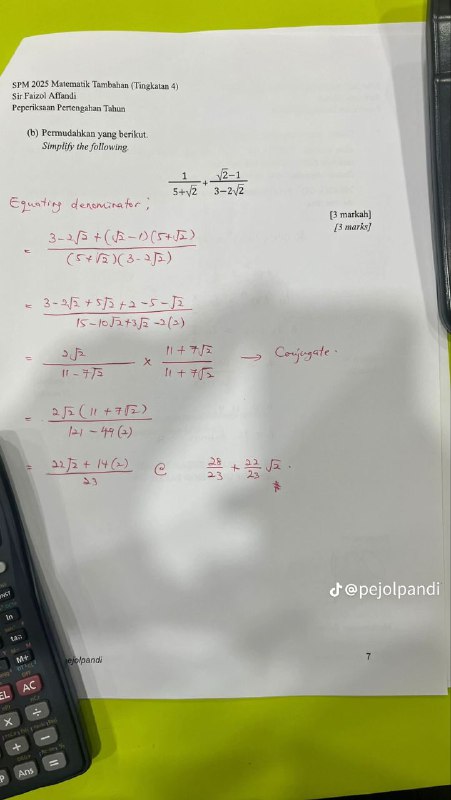 SPM 2025 Matematik Tambahan (Tingkatan 4)
Sir Faizol Affandi
Peperiksaan Pertengahan Tahun
(b) Permudahkan yang berikut.
Simplify the following.
1/(5+√2) + (√2−1)/(3−2√2)
[3 markah]
[3 marks]
Equating denominator;
= (3−2√2 + (√2−1)(5+√2))/((5+√2)(3−2√2))
= (3−2√2 + 5√2 + 2 − 5 − √2)/(15−10√2+3√2−2(2))
= 2√2/(11−7√2) × (11+7√2)/(11+7√2) → Conjugate.
= 2√2(11+7√2)/(121−49(2))
= (22√2+14(2))/23 @ 28/23 + 22/23 √2.
@pejolpandi
ejolpandi
7
INST
ln
tan
M+
EL
AC
X
÷
+
−
P
Ans
=